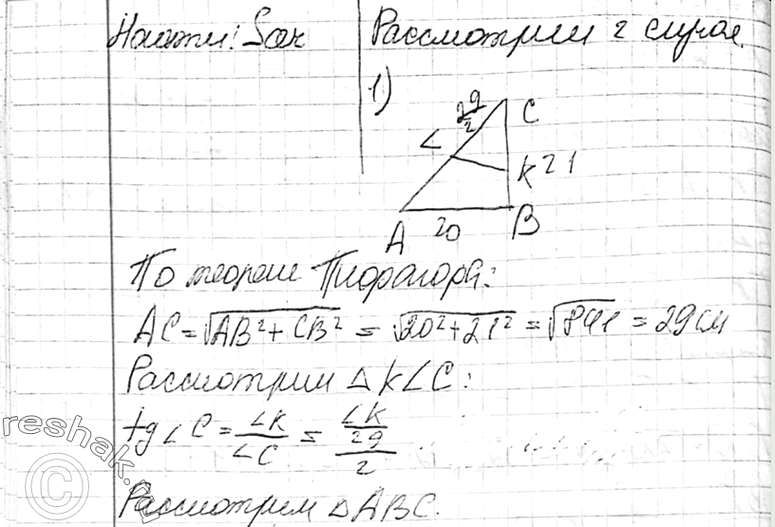 Найти: Sсек
Рассмотрим 2 случая.
1)
29/2
C
L
K 21
A 20 B
По теореме Пифагора:
AC = √AB² + CB² = √20² + 21² = √841 = 29 см
Рассмотрим △KLC:
tg∠C = LK/LC = LK/(29/2)
Рассмотрим △ABC.
© reshak.ru